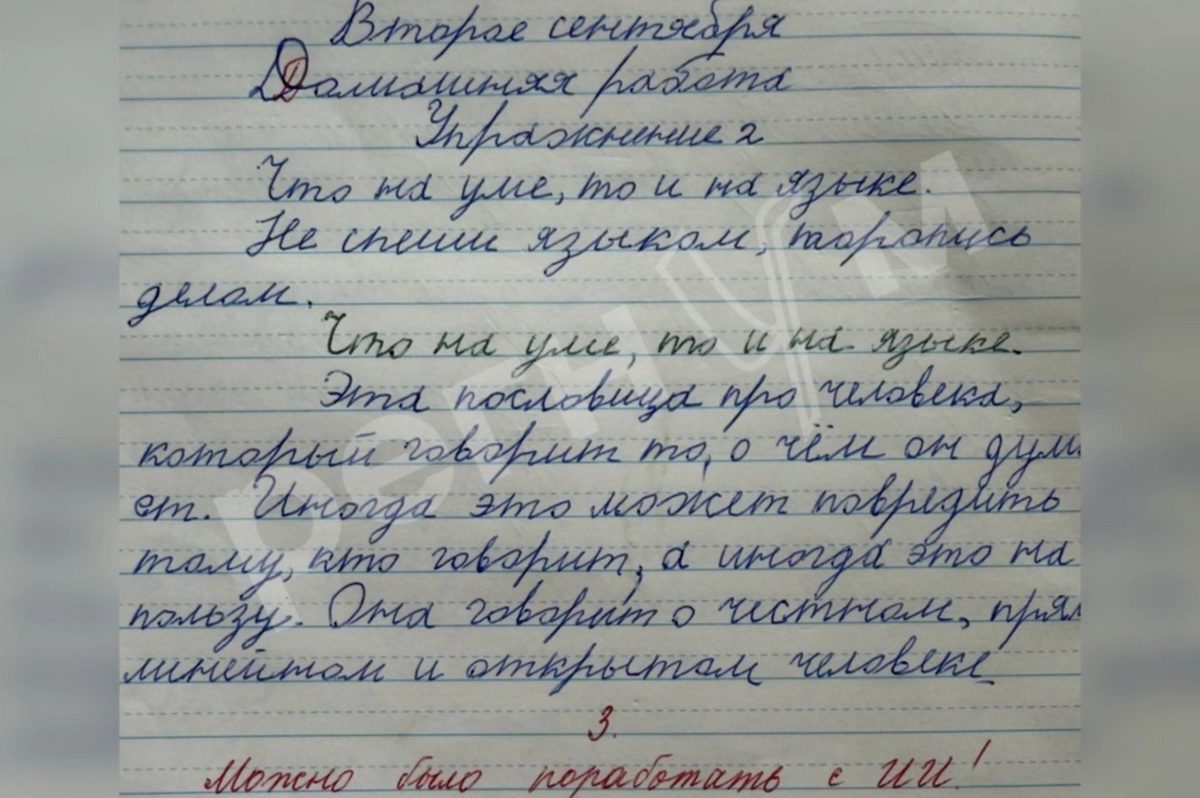 Второе сентября
Домашняя работа
Упражнение 2
Что на уме, то и на языке.
Не спеши языком, торопись
делом.
Что на уме, то и на языке.
Эта пословица про человека,
который говорит то, о чём он дума
ет. Иногда это может повредить
тому, кто говорит, а иногда это на
пользу. Она говорит о честном, прям
линейном и открытом человеке
3.
Можно было поработать с ИИ!
регнУм